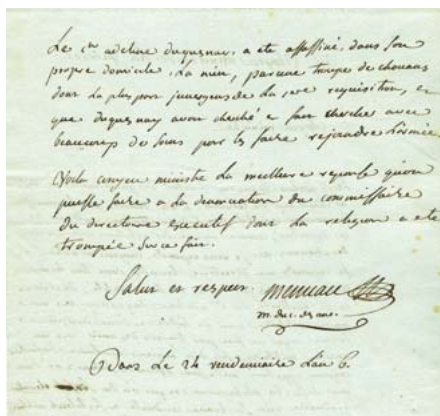 Le c.en adeline duquesnay, a ete assassiné, dans son
propre domicile, La nuit, par une troupe de chouans
dont la plus part jeunes gens de la 1ere requisition, et
que duquesnay avoit cherché et fait chercher avec
beaucoup de soins pour les faire rejoindre L'armée
Voila citoyen ministre La meilleure reponse qu'on
puisse faire a la denonciation du commissaire
du directoire executif dont La religion a ete
trompée sur ce fait.
Salut et respect
Le 24 vendemiaire L'an 6.